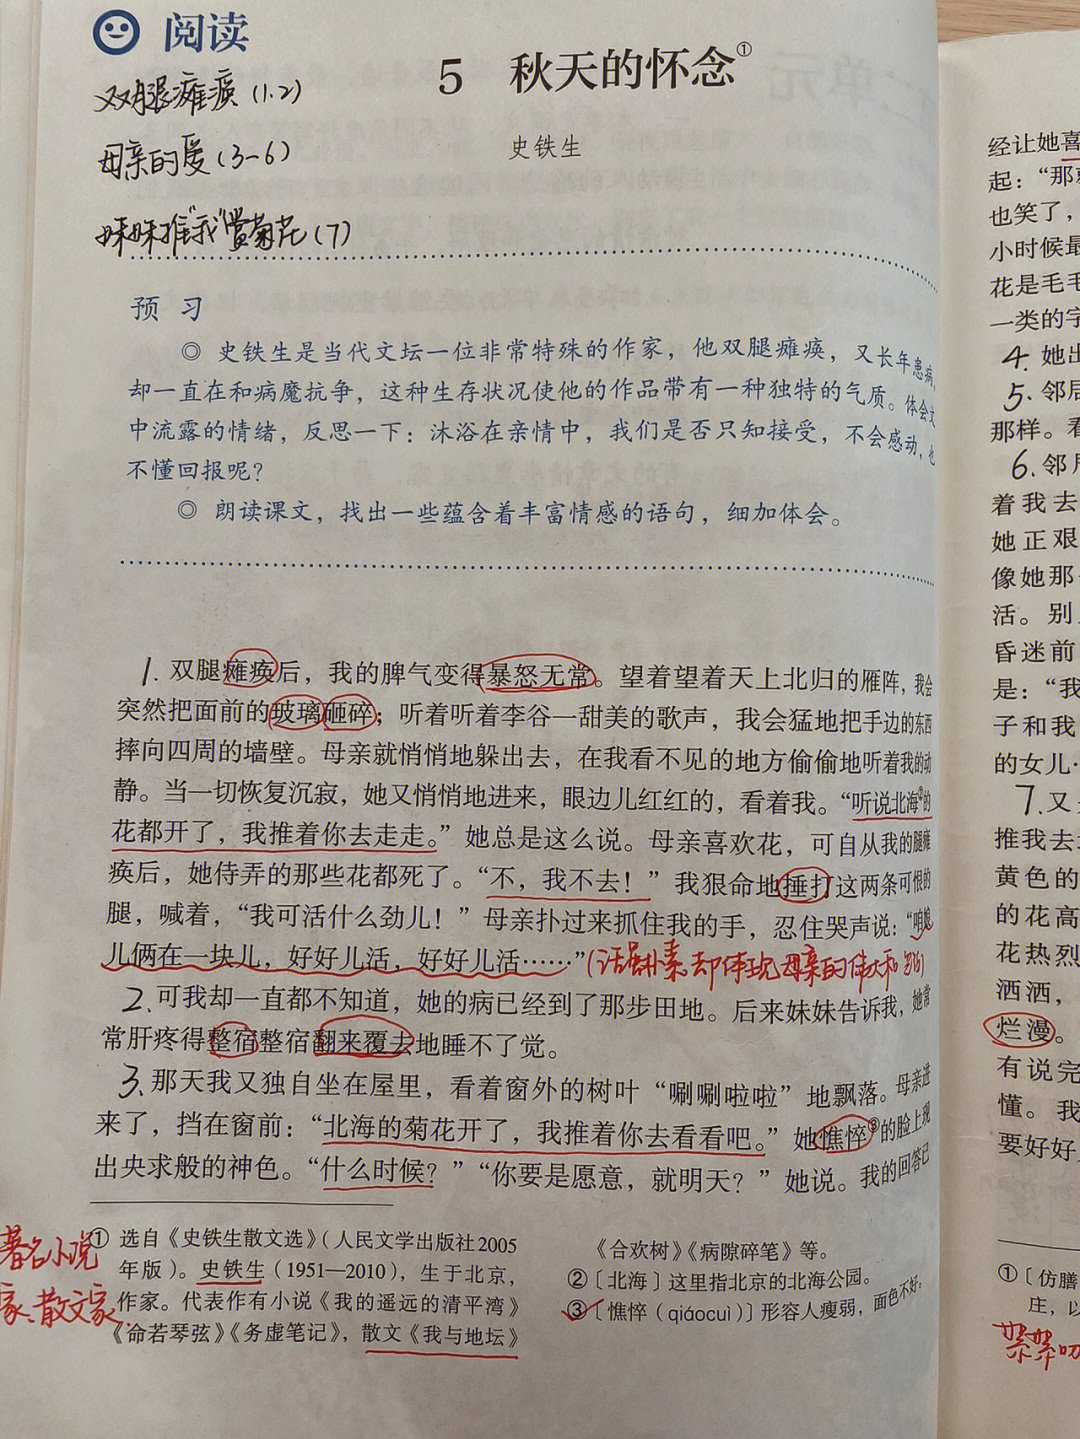 阅读
5 秋天的怀念①
史铁生
双腿瘫痪(1.2)
母亲的爱(3-6)
妹妹推“我”赏菊花(7)
预习
◎ 史铁生是当代文坛一位非常特殊的作家，他双腿瘫痪，又长年患病，
却一直在和病魔抗争，这种生存状况使他的作品带有一种独特的气质。体会文
中流露的情绪，反思一下：沐浴在亲情中，我们是否只知接受，不会感动，也
不懂回报呢？
◎ 朗读课文，找出一些蕴含着丰富情感的语句，细加体会。
1. 双腿瘫痪后，我的脾气变得暴怒无常。望着望着天上北归的雁阵，我会
突然把面前的玻璃砸碎；听着听着李谷一甜美的歌声，我会猛地把手边的东西
摔向四周的墙壁。母亲就悄悄地躲出去，在我看不见的地方偷偷地听着我的动
静。当一切恢复沉寂，她又悄悄地进来，眼边儿红红的，看着我。“听说北海②的
花都开了，我推着你去走走。”她总是这么说。母亲喜欢花，可自从我的腿瘫
痪后，她侍弄的那些花都死了。“不，我不去！”我狠命地捶打这两条可恨的
腿，喊着，“我可活什么劲儿！”母亲扑过来抓住我的手，忍住哭声说：“咱娘
儿俩在一块儿，好好儿活，好好儿活……”(话虽朴素却体现母亲的伟大和
2. 可我却一直都不知道，她的病已经到了那步田地。后来妹妹告诉我，她常
常肝疼得整宿整宿翻来覆去地睡不了觉。
3. 那天我又独自坐在屋里，看着窗外的树叶“唰唰啦啦”地飘落。母亲进
来了，挡在窗前：“北海的菊花开了，我推着你去看看吧。”她憔悴③的脸上现
出央求般的神色。“什么时候？”“你要是愿意，就明天？”她说。我的回答已
① 选自《史铁生散文选》（人民文学出版社2005
年版）。史铁生（1951—2010），生于北京，
作家。代表作有小说《我的遥远的清平湾》
《命若琴弦》《务虚笔记》，散文《我与地坛》
著名小说
家、散文家.
《合欢树》《病隙碎笔》等。
②〔北海〕这里指北京的北海公园。
③〔憔悴（qiáocuì）〕形容人瘦弱，面色不好。
经让她喜
起：“那
也笑了，
小时候最
花是毛毛
一类的字
4. 她出
5. 邻居
那样。看
6. 邻居
着我去
她正艰
像她那
活。别
昏迷前
是：“我
子和我
的女儿
7. 又
推我去
黄色的
的花高
花热烈
洒洒，
烂漫。
有说完
懂。我
要好好
①〔仿膳
庄，以
絮絮叨